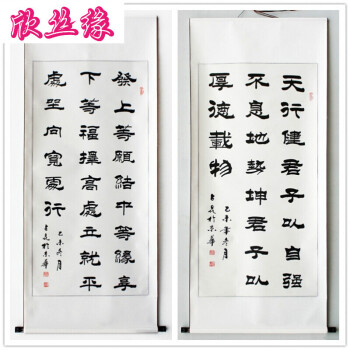 欣丝缘
發上等願結中等緣享
下等福擇高處立就平
處坐向寬處行
乙未冬月
於京華
天行健君子以自强
不息地勢坤君子以
厚德載物
乙未年冬月
於京華